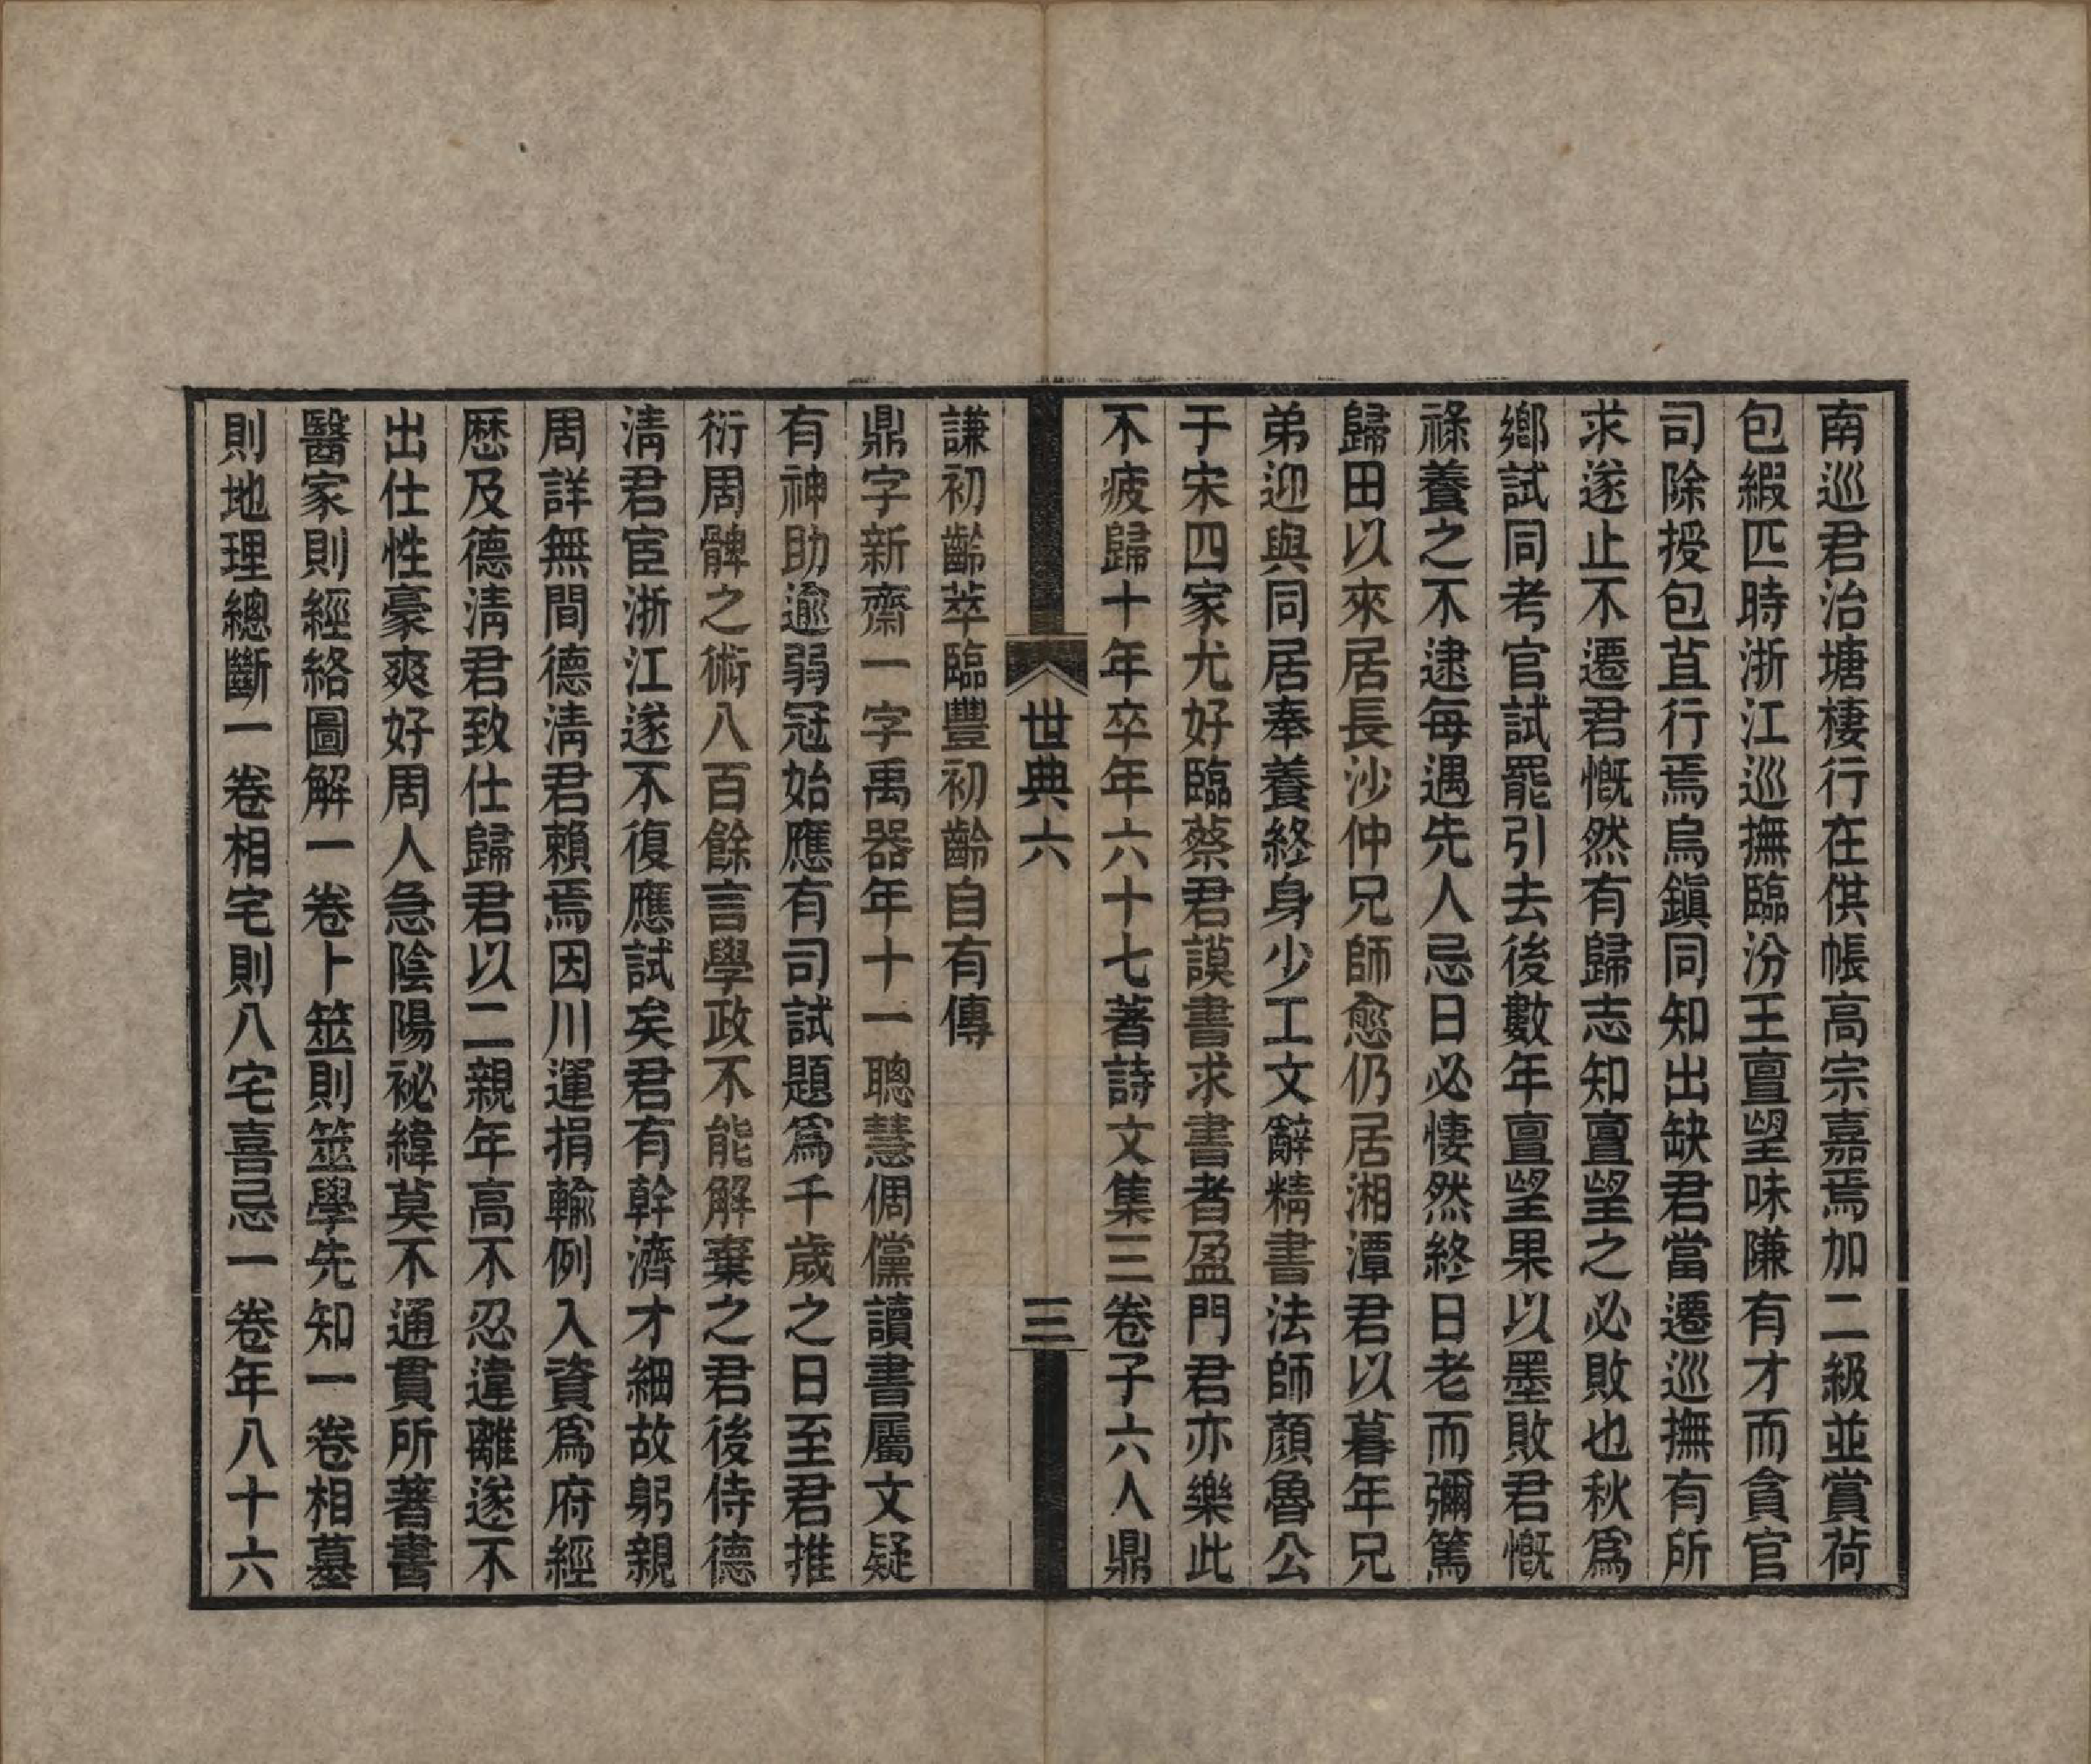 南巡君治塘棲行在供帳高宗嘉焉加二級並賞荷
包緞匹時浙江巡撫臨汾王亶望味賺有才而貪官
司除授包苴行焉烏鎮同知出缺君當遷巡撫有所
求遂止不遷君慨然有歸志知亶望之必敗也秋爲
鄉試同考官試罷引去後數年亶望果以墨敗君慨
祿養之不逮每遇先人忌日必悽然終日老而彌篤
歸田以來居長沙仲兄師愈仍居湘潭君以暮年兄
弟迎與同居奉養終身少工文辭精書法師顏魯公
于宋四家尤好臨蔡君謨書求書者盈門君亦樂此
不疲歸十年卒年六十七著詩文集三卷子六人鼎
世典六 三
謙初齡萃臨豐初齡自有傳
鼎字新齋一字禹器年十一聰慧倜儻讀書屬文疑
有神助逾弱冠始應有司試題爲千歲之日至君推
衍周髀之術八百餘言學政不能解棄之君後侍德
淸君宦浙江遂不復應試矣君有幹濟才細故躬親
周詳無間德淸君賴焉因川運捐輸例入資爲府經
歷及德淸君致仕歸君以二親年高不忍違離遂不
出仕性豪爽好周人急陰陽祕緯莫不通貫所著書
醫家則經絡圖解一卷卜筮則筮學先知一卷相墓
則地理總斷一卷相宅則八宅喜忌一卷年八十六